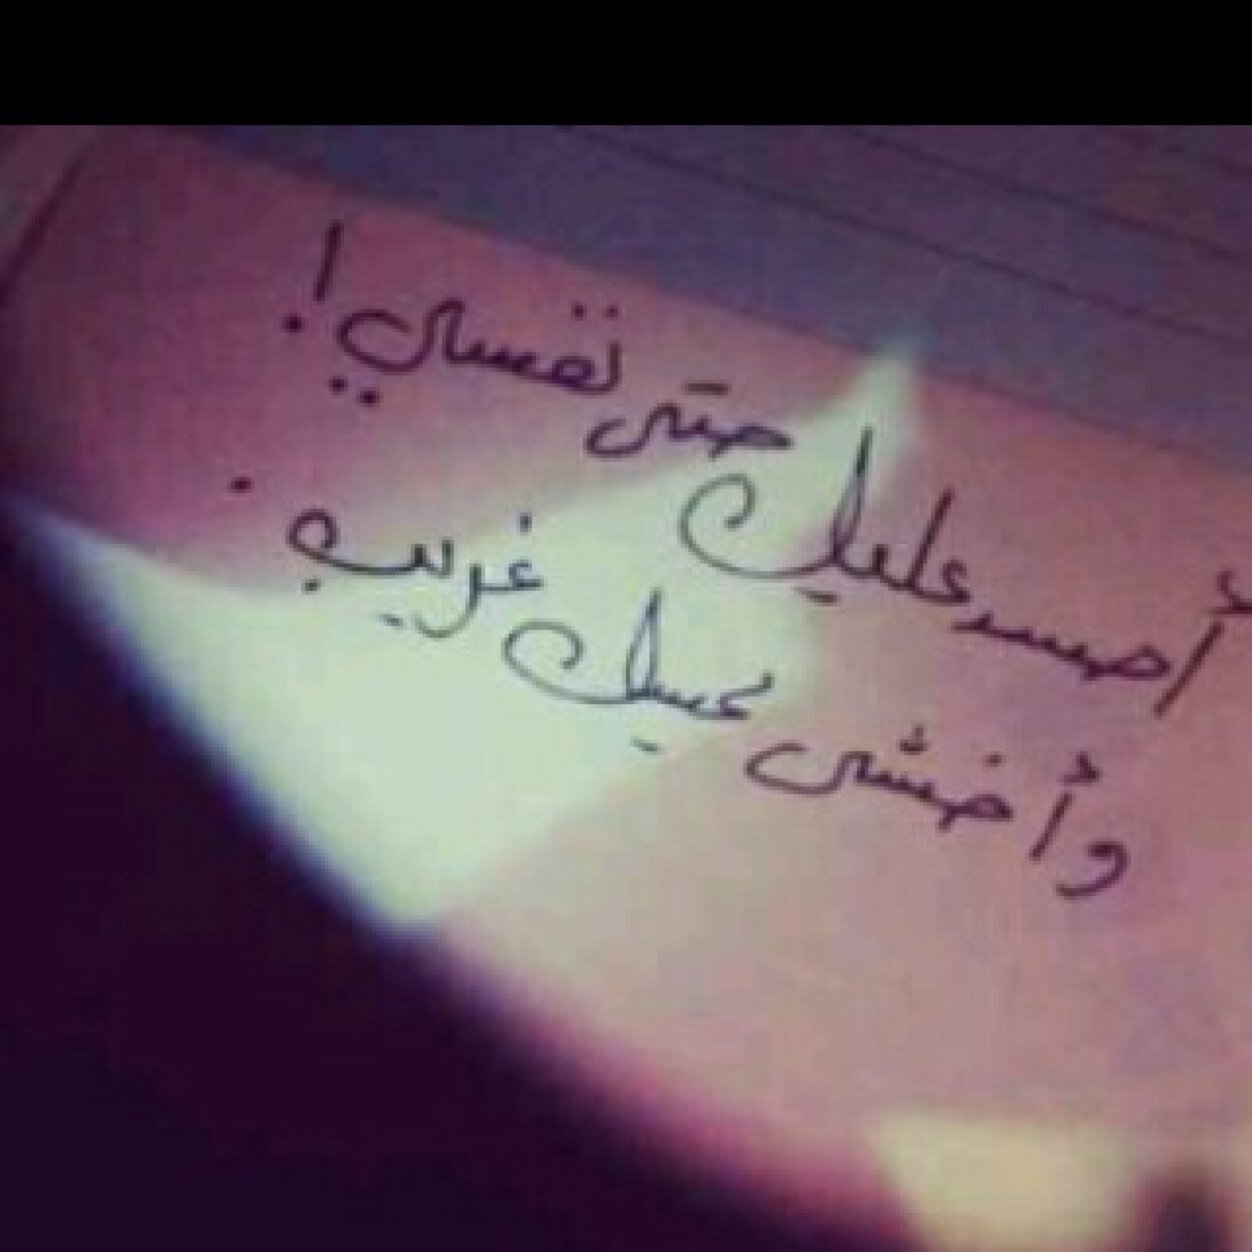 أحسد عليك حتى نفسي !
وأخشى غريب .